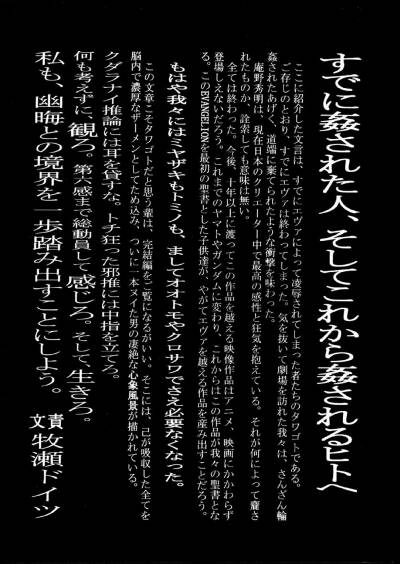 すでに姦された人、そしてこれから姦されるヒトへ
ここに紹介した文言は、すでにエヴァによって凌辱されてしまった者たちのタワゴトである。
ご存じのとおり、すでにエヴァは終わってしまった。気を抜いて劇場を訪れた我々は、さんざん輪
姦されたあげく、道端に棄てられたような衝撃を味わった。
庵野秀明は、現在日本のクリエーター中で最高の感性と狂気を抱えている。それが何によって齎さ
れたものか、詮索しても意味は無い。
全ては終わった。今後、十年以上に渡ってこの作品を越える映像作品はアニメ、映画にかかわらず
登場しえないだろう。これまでのヤマトやガンダムに変わり、これからはこの作品が我々の聖書とな
る。このEVANGELIONを最初の聖書とした子供達が、やがてエヴァを越える作品を産み出すことだろう。
もはや我々にはミヤザキもトミノも、ましてオオトモやクロサワでさえ必要なくなった。
この文章こそタワゴトだと思う輩は、完結編をご覧になるがいい。そこには、己が吸収した全てを
脳内で濃厚なザーメンとしてため込み、ついに一本ヌイた男の凄絶な心象風景が描かれている。
クダラナイ推論には耳を貸すな。トチ狂った邪推には中指を立てろ。
何も考えずに、観ろ。第六感まで総動員して感じろ。そして、生きろ。
私も、幽晦との境界を一歩踏み出すことにしよう。
文責 牧瀬ドイツ